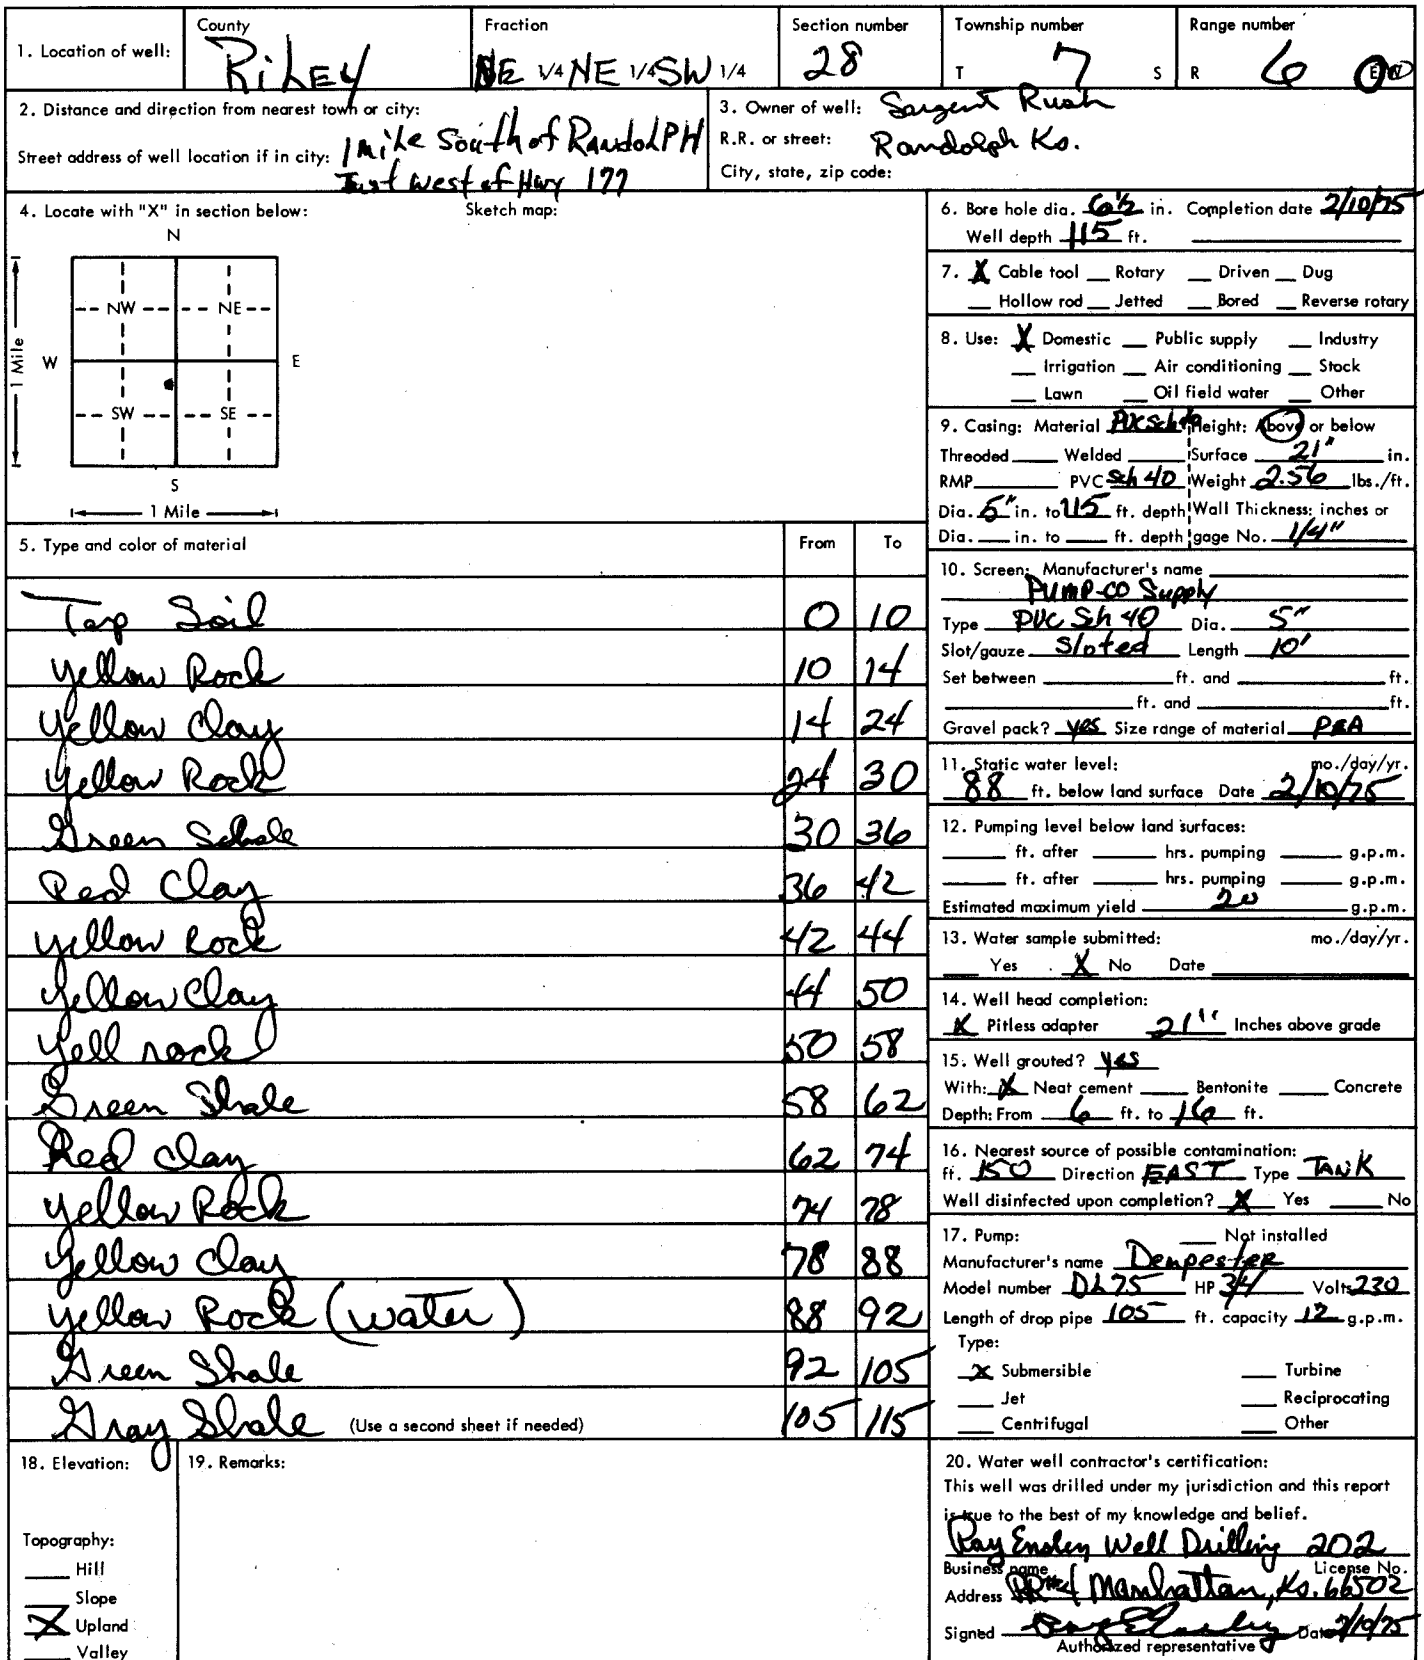 1. Location of well: County Riley Fraction NE 1/4 NE 1/4 SW 1/4 Section number 28 Township number T 7 S Range number R 6 E
2. Distance and direction from nearest town or city:
Street address of well location if in city: 1 mile South of RandolPH
Just west of Hwy 177
3. Owner of well: Sargent Rush
R.R. or street: Randolph Ks.
City, state, zip code:
4. Locate with "X" in section below: Sketch map:
N
NW NE
W E
SW SE
S
1 Mile
1 Mile
5. Type and color of material From To
Top Soil 0 10
Yellow Rock 10 14
Yellow Clay 14 24
Yellow Rock 24 30
Green Schale 30 36
Red Clay 36 42
Yellow Rock 42 44
Yellow Clay 44 50
Yell rock 50 58
Green Shale 58 62
Red Clay 62 74
Yellow Rock 74 78
Yellow Clay 78 88
Yellow Rock (water) 88 92
Green Shale 92 105
Gray Shale (Use a second sheet if needed) 105 115
6. Bore hole dia. 6 1/2 in. Completion date 2/10/75
Well depth 115 ft.
7. X Cable tool Rotary Driven Dug
Hollow rod Jetted Bored Reverse rotary
8. Use: X Domestic Public supply Industry
Irrigation Air conditioning Stock
Lawn Oil field water Other
9. Casing: Material PVC Sch 40 Height: Above or below
Threaded Welded Surface 21" in.
RMP PVC Sch 40 Weight 2.56 lbs./ft.
Dia. 5" in. to 115 ft. depth Wall Thickness: inches or
Dia. in. to ft. depth gage No. 1/4"
10. Screen: Manufacturer's name
PUMP-CO Supply
Type PVC Sch 40 Dia. 5"
Slot/gauze Sloted Length 10'
Set between ft. and ft.
ft. and ft.
Gravel pack? yes Size range of material PEA
11. Static water level: mo./day/yr.
88 ft. below land surface Date 2/10/75
12. Pumping level below land surfaces:
ft. after hrs. pumping g.p.m.
ft. after hrs. pumping g.p.m.
Estimated maximum yield 20 g.p.m.
13. Water sample submitted: mo./day/yr.
Yes X No Date
14. Well head completion:
X Pitless adapter 21" Inches above grade
15. Well grouted? yes
With: X Neat cement Bentonite Concrete
Depth: From 6 ft. to 16 ft.
16. Nearest source of possible contamination:
ft. 150 Direction EAST Type TANK
Well disinfected upon completion? X Yes No
17. Pump: Not installed
Manufacturer's name Dempester
Model number DL75 HP 3/4 Volts 230
Length of drop pipe 105 ft. capacity 12 g.p.m.
Type:
X Submersible Turbine
Jet Reciprocating
Centrifugal Other
18. Elevation:
Topography:
Hill
Slope
X Upland
Valley
19. Remarks:
20. Water well contractor's certification:
This well was drilled under my jurisdiction and this report
is true to the best of my knowledge and belief.
Ray Ensley Well Drilling 202
Business name License No.
Address RR#4 Manhattan, Ks. 66502
Signed Ray Ensley Date 2/10/75
Authorized representative